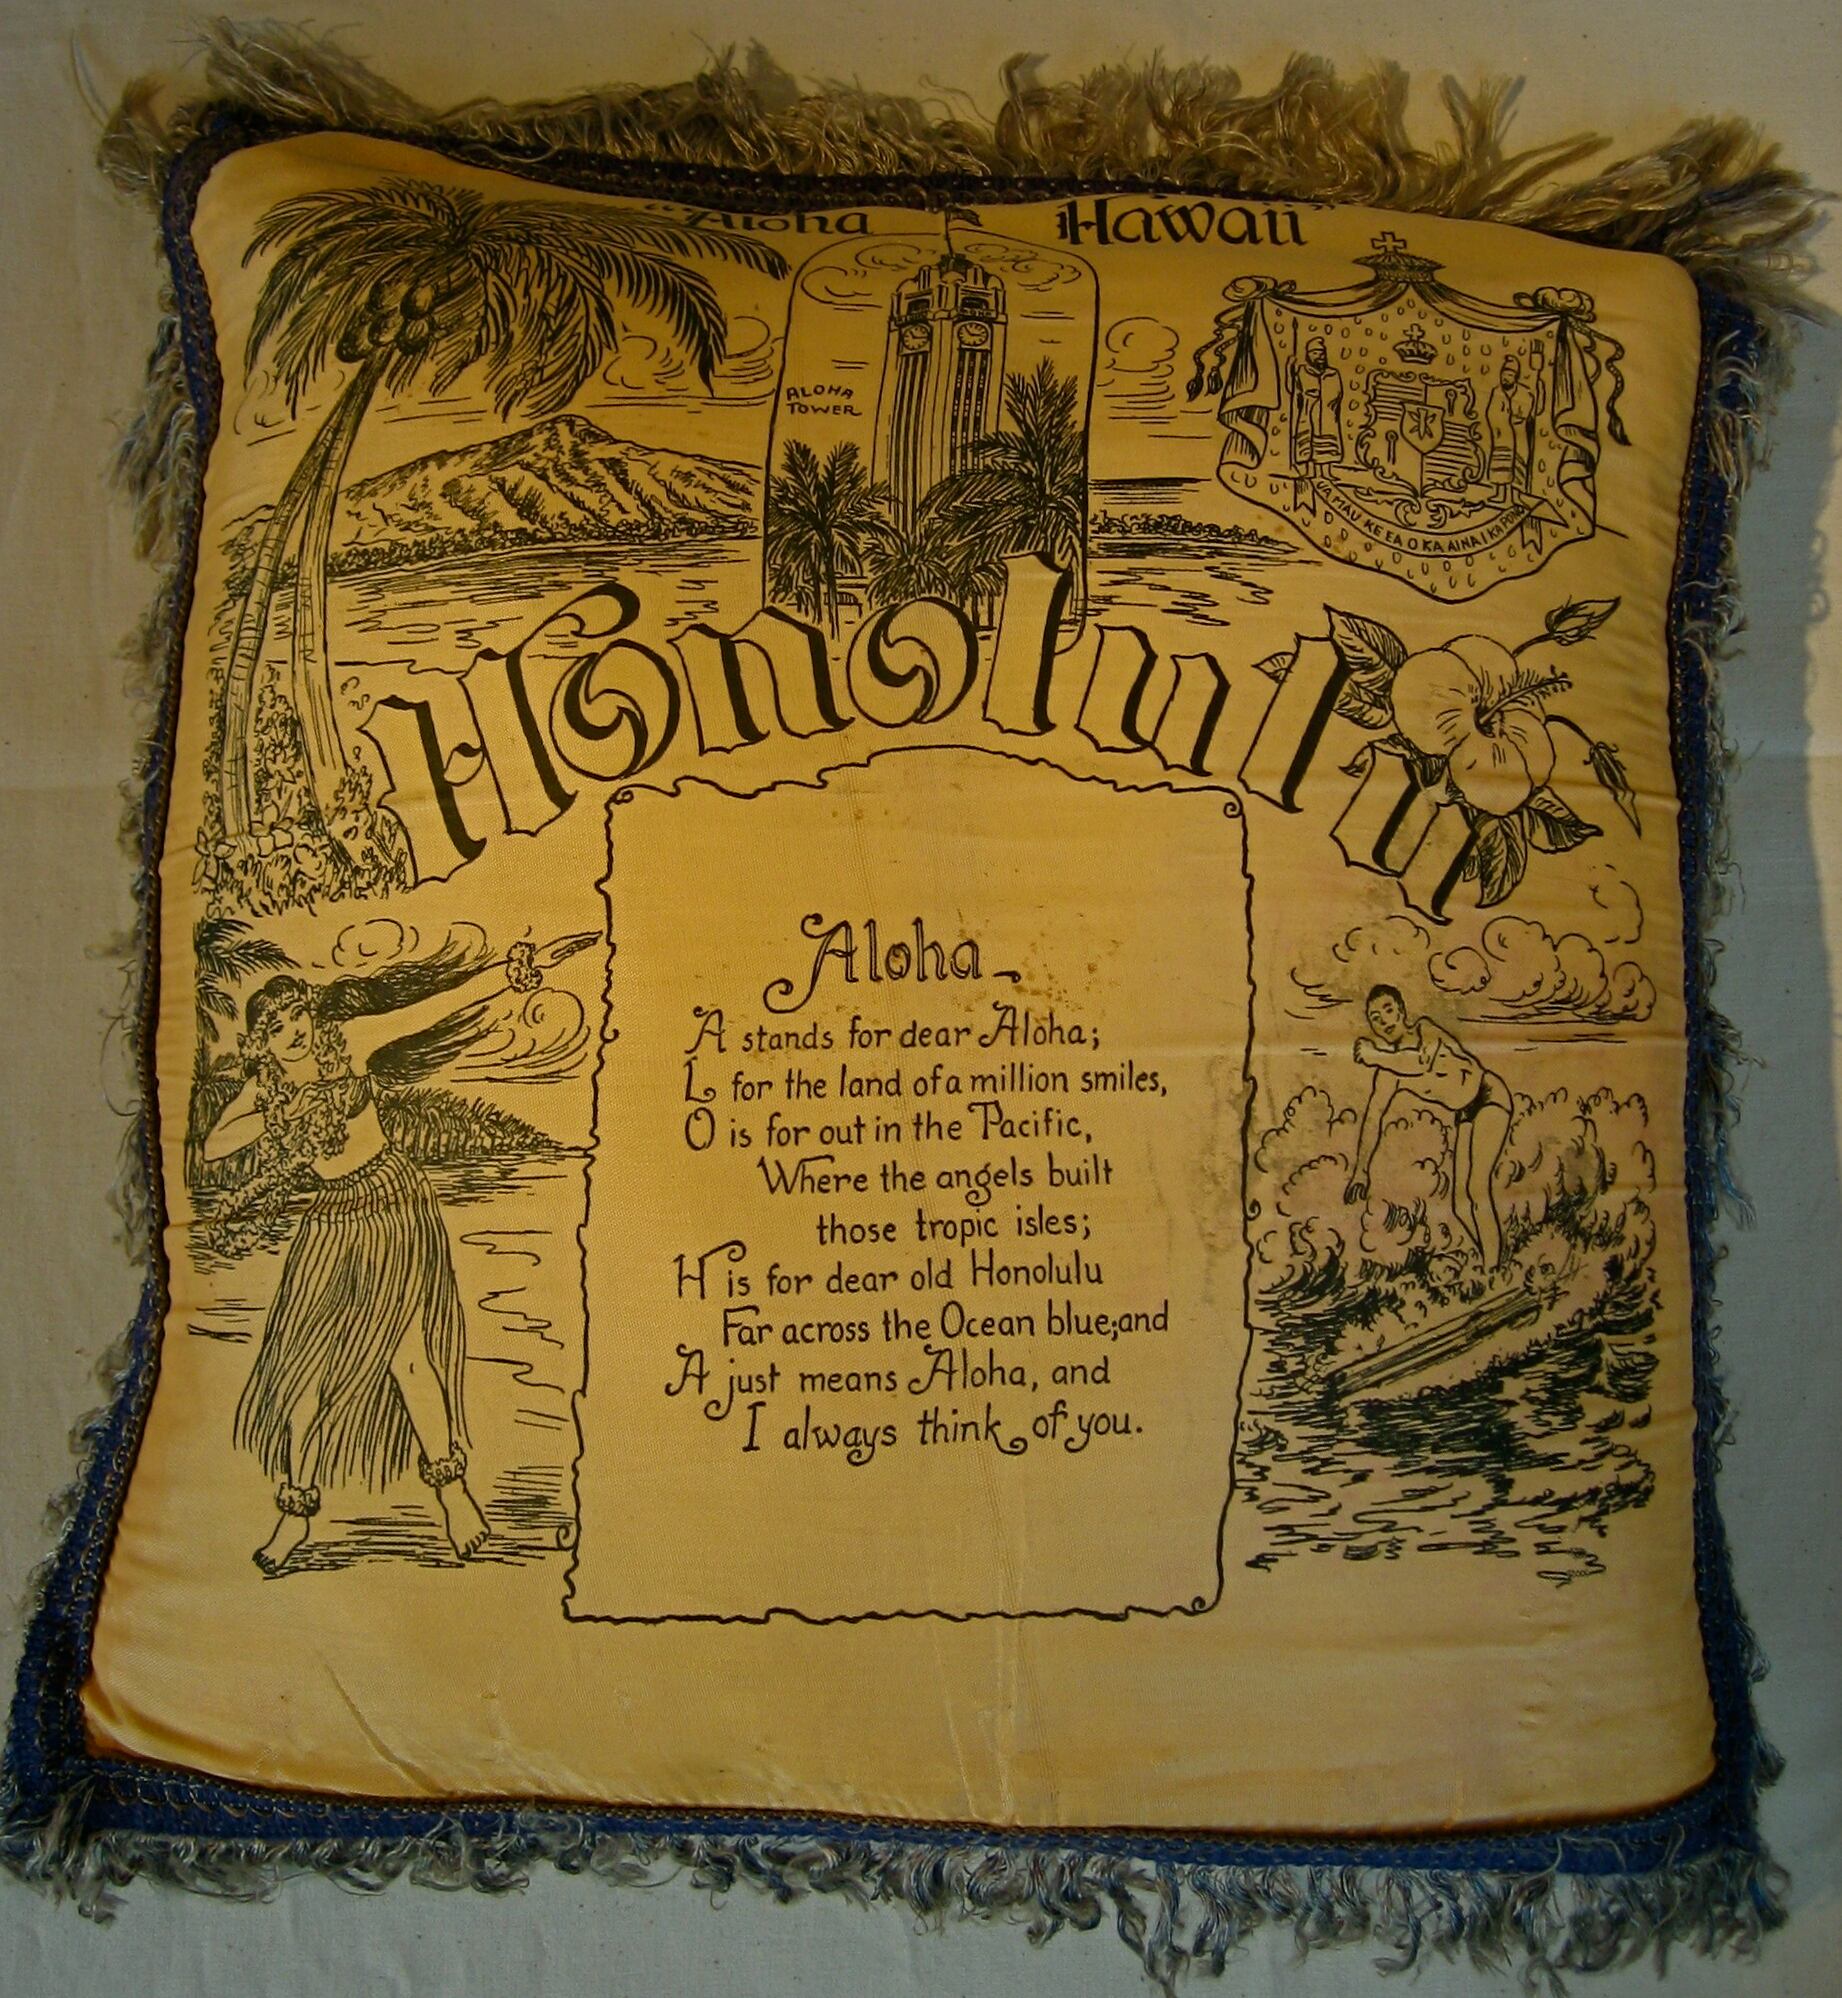 "Aloha Hawaii"
ALOHA
TOWER
UA MAU KE EA O KA AINA I KA PONO
Honolulu
Aloha
A stands for dear Aloha;
L for the land of a million smiles,
O is for out in the Pacific,
Where the angels built
those tropic isles;
H is for dear old Honolulu
Far across the Ocean blue; and
A just means Aloha, and
I always think of you.